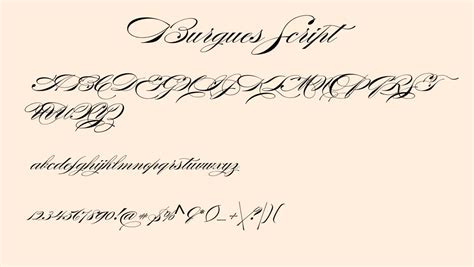 Burgues Script
ABCDEFGHIJKLMNOPQRST
UVWXYZ
abcdefghijklmnopqrstuvwxyz
1234567890!@#$%^&*()_+\/?|()